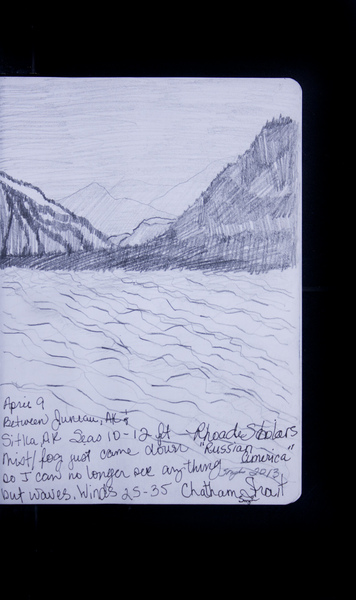 April 9
Between Juneau, AK &
Sitka AK Seas 10-12 ft Rhoades Scholars
mist/fog just came down "Russian America"
so I can no longer see anything 2013
but waves. Winds 25-35 Chatham Strait